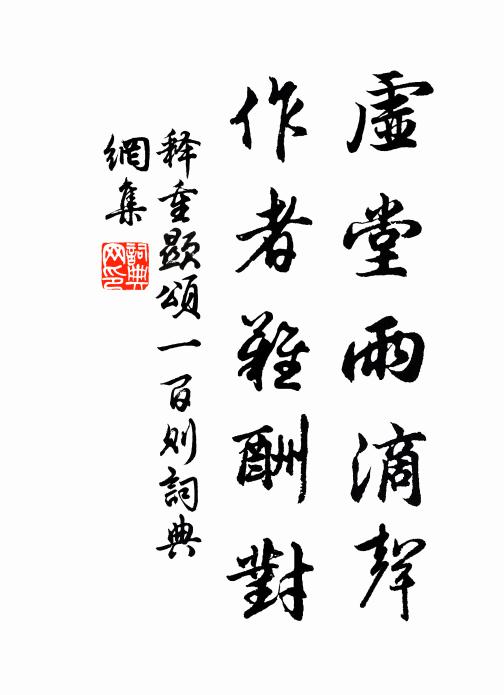 虛堂雨滴聲
作者難酬對
释重顯頌一百则詞典
網集
詞典
网印